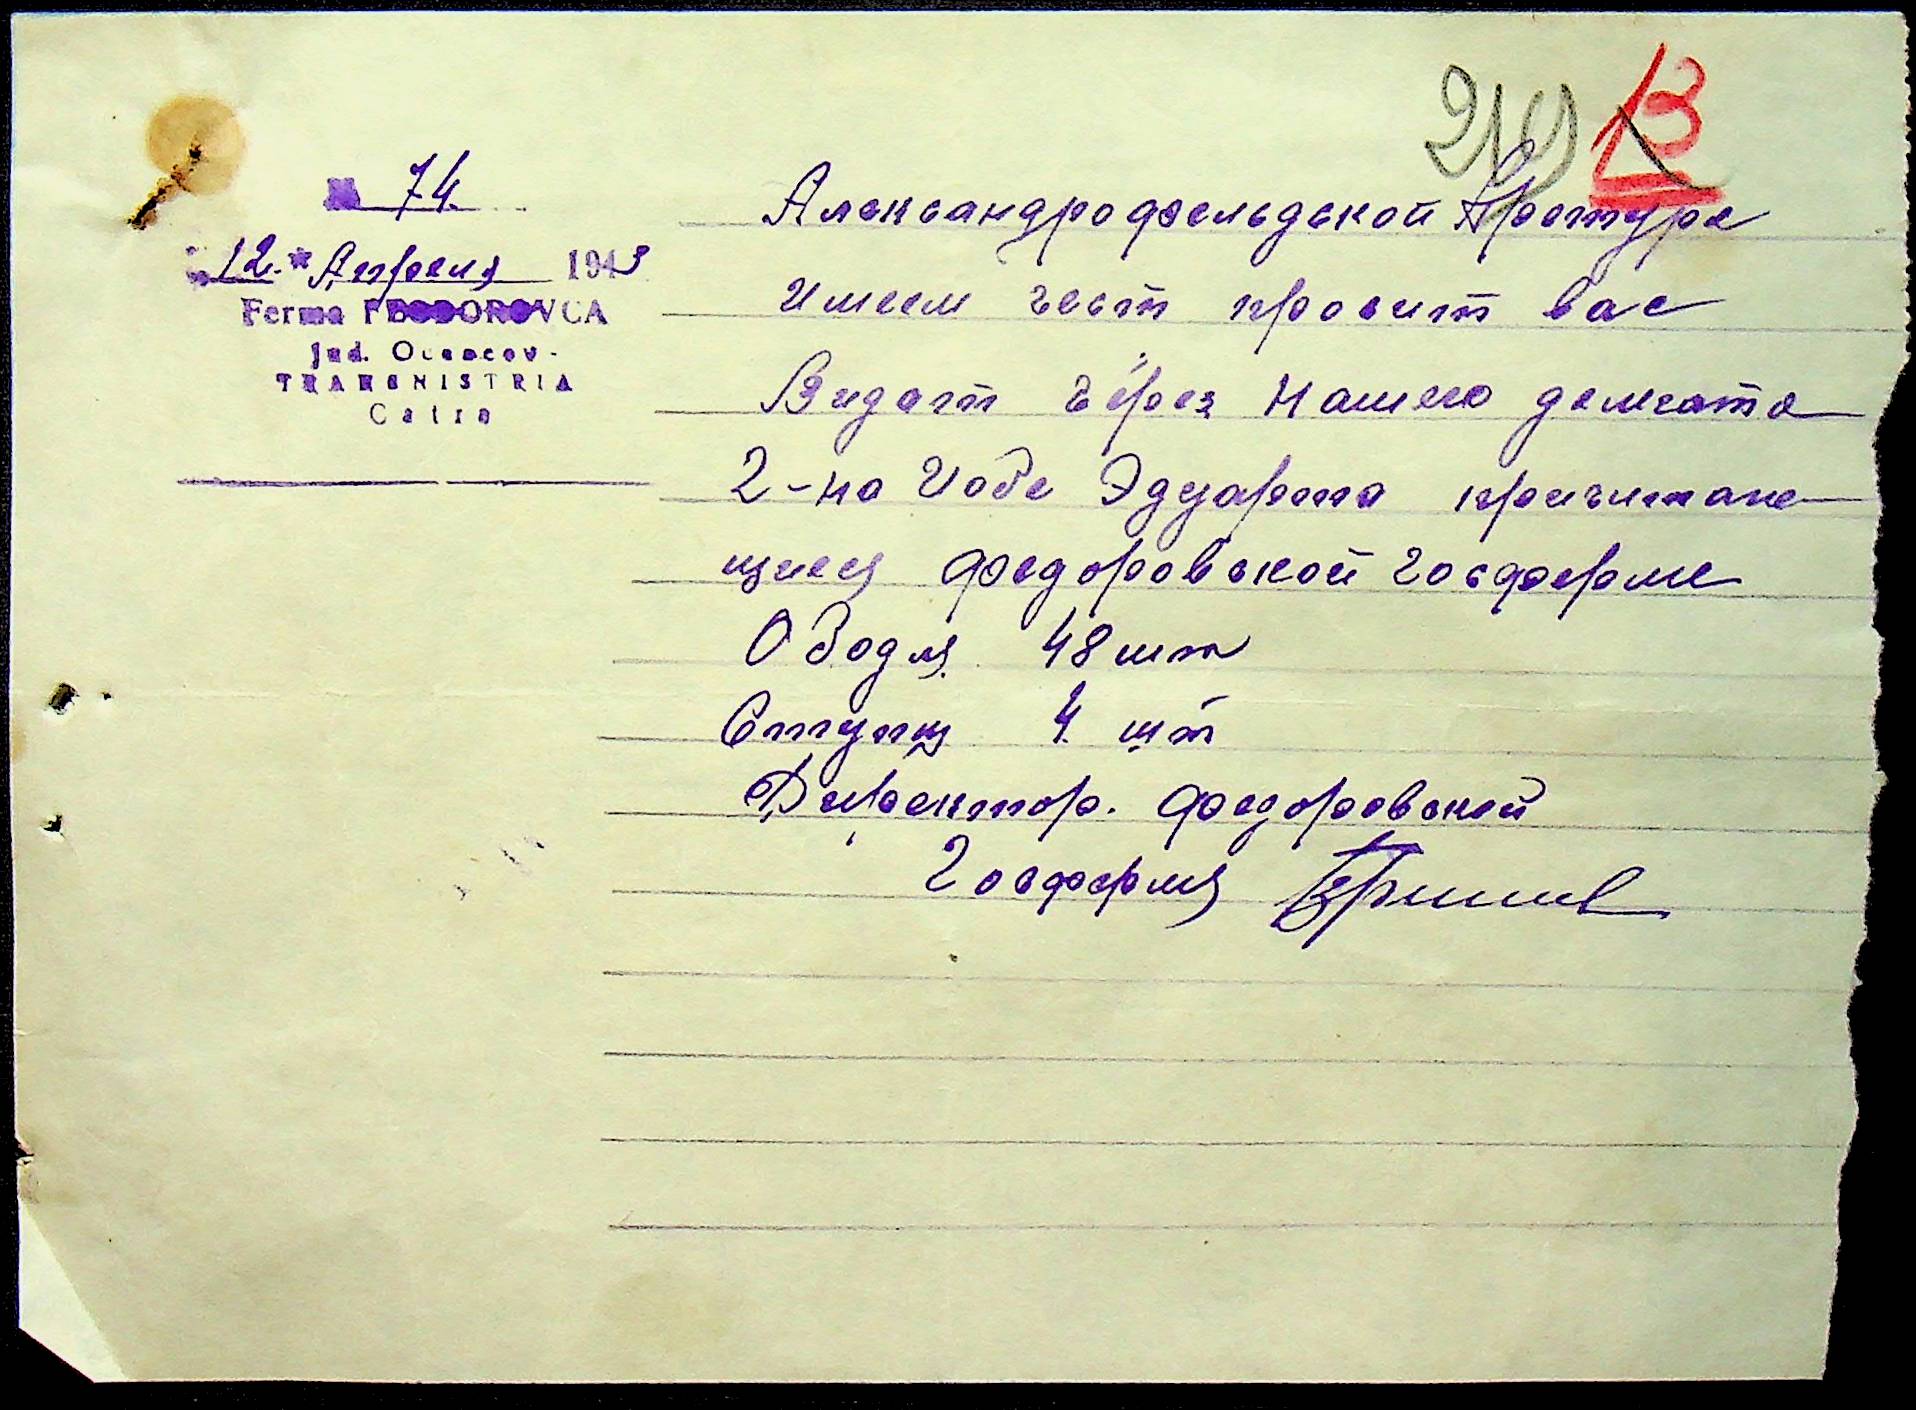 13
№ 74.
"12." Апреля 1943
Ferma FEODOROVCA
Jud. Oceacov-
TRANSNISTRIA
Catre
Александрофельдской Претуре
Имеем чест просит вас
Видат через Нашего делегата
2-на Иобе Эдуарта причитаю-
щиеся Федоровской Госферме
Ободя 48 шт
Ступщ 4 шт
Директор. Федоровской
Госфермы